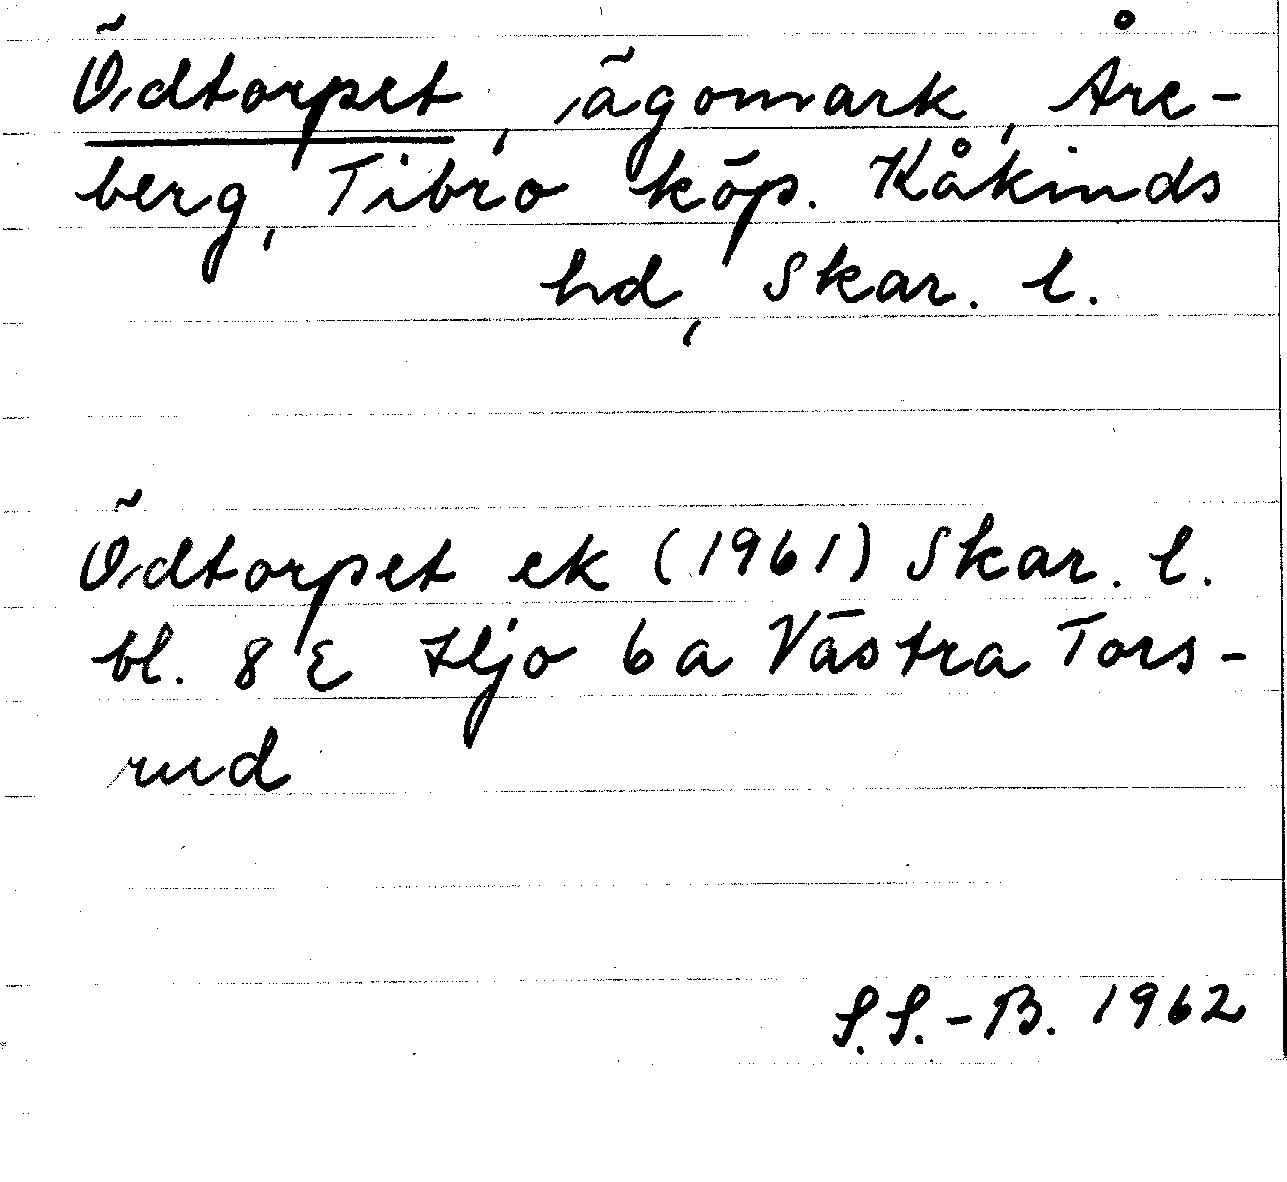 Ödtorpet, ägomark, Åre-
berg, Tibro köp. Kåkinds
hd, Skar. l.
Ödtorpet ek (1961) Skar. l.
bl. 8 E Hjo 6 a Västra Tors-
rud
S.S.-B. 1962